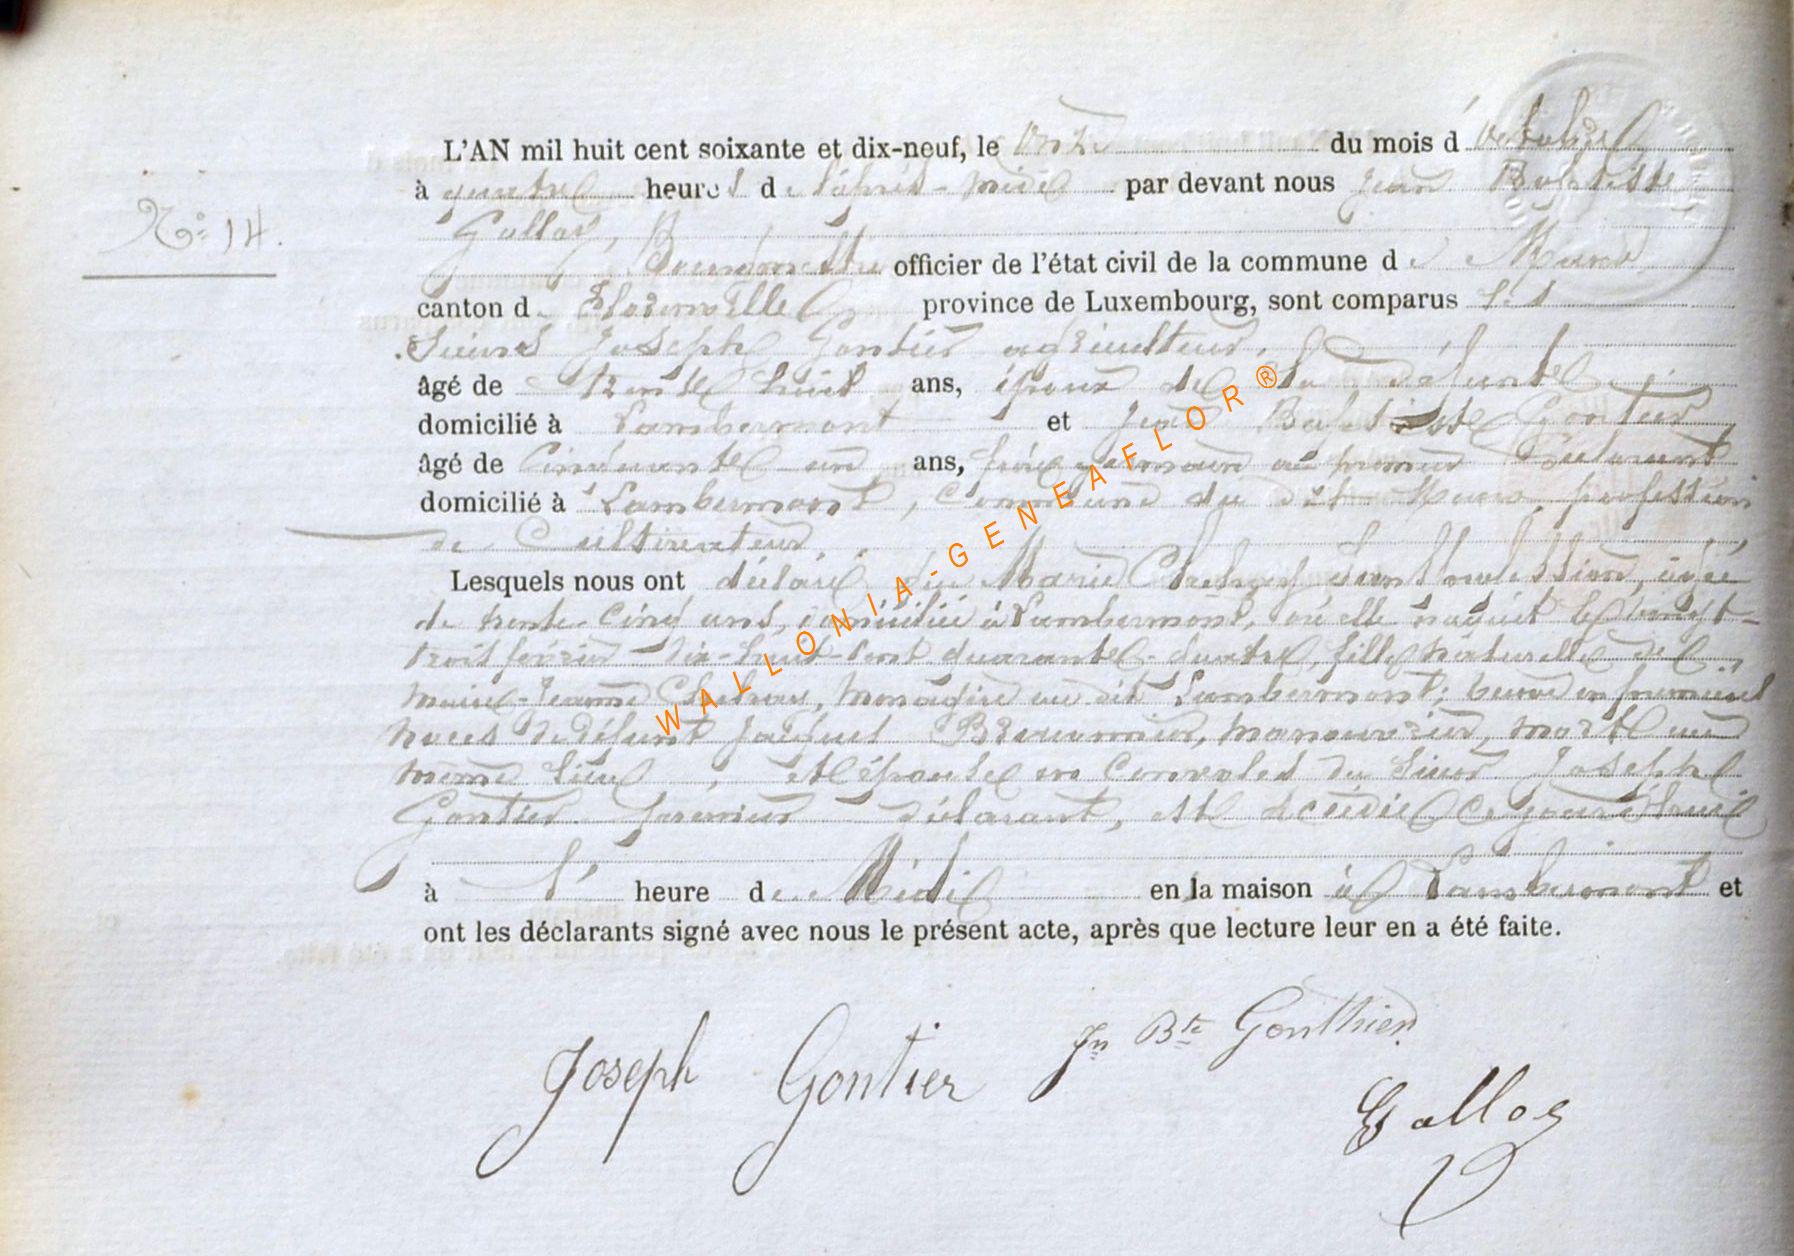 L'AN mil huit cent soixante et dix-neuf, le onze du mois d'octobre
à quatre heures de l'après-midi par devant nous Jean Baptiste
N° 14.
Galloy,
Bourgmestre officier de l'état civil de la commune de Muno
canton de Florenville province de Luxembourg, sont comparus les
Sieurs Joseph Gontier agriculteur,
âgé de trente huit ans, époux de la défunte
domicilié à Lambermont et Jean Baptiste Gontier
âgé de Cinquante un ans, frère germain au premier déclarant
domicilié à Lambermont, commune du dit Muno, profession
de Cultivateur
Lesquels nous ont déclaré que Marie sans profession, âgée
de trente-cinq ans, domiciliée à Lambermont, où elle naquit le vingt-
trois février dix-huit-cent quarante-quatre, fille naturelle de
Marie-Jeanne ménagère au dit Lambermont; veuve en premières
noces de défunt Jacques manouvrier, mort au
même lieu, et épouse en du sieur Joseph
Gontier premier déclarant, est décédée ce jourd'hui
à l' heure de Midi en la maison à Lambermont et
ont les déclarants signé avec nous le présent acte, après que lecture leur en a été faite.
Joseph Gontier Jn Bte Gonthier
Galloy
WALLONIA-GENEAFLOR®